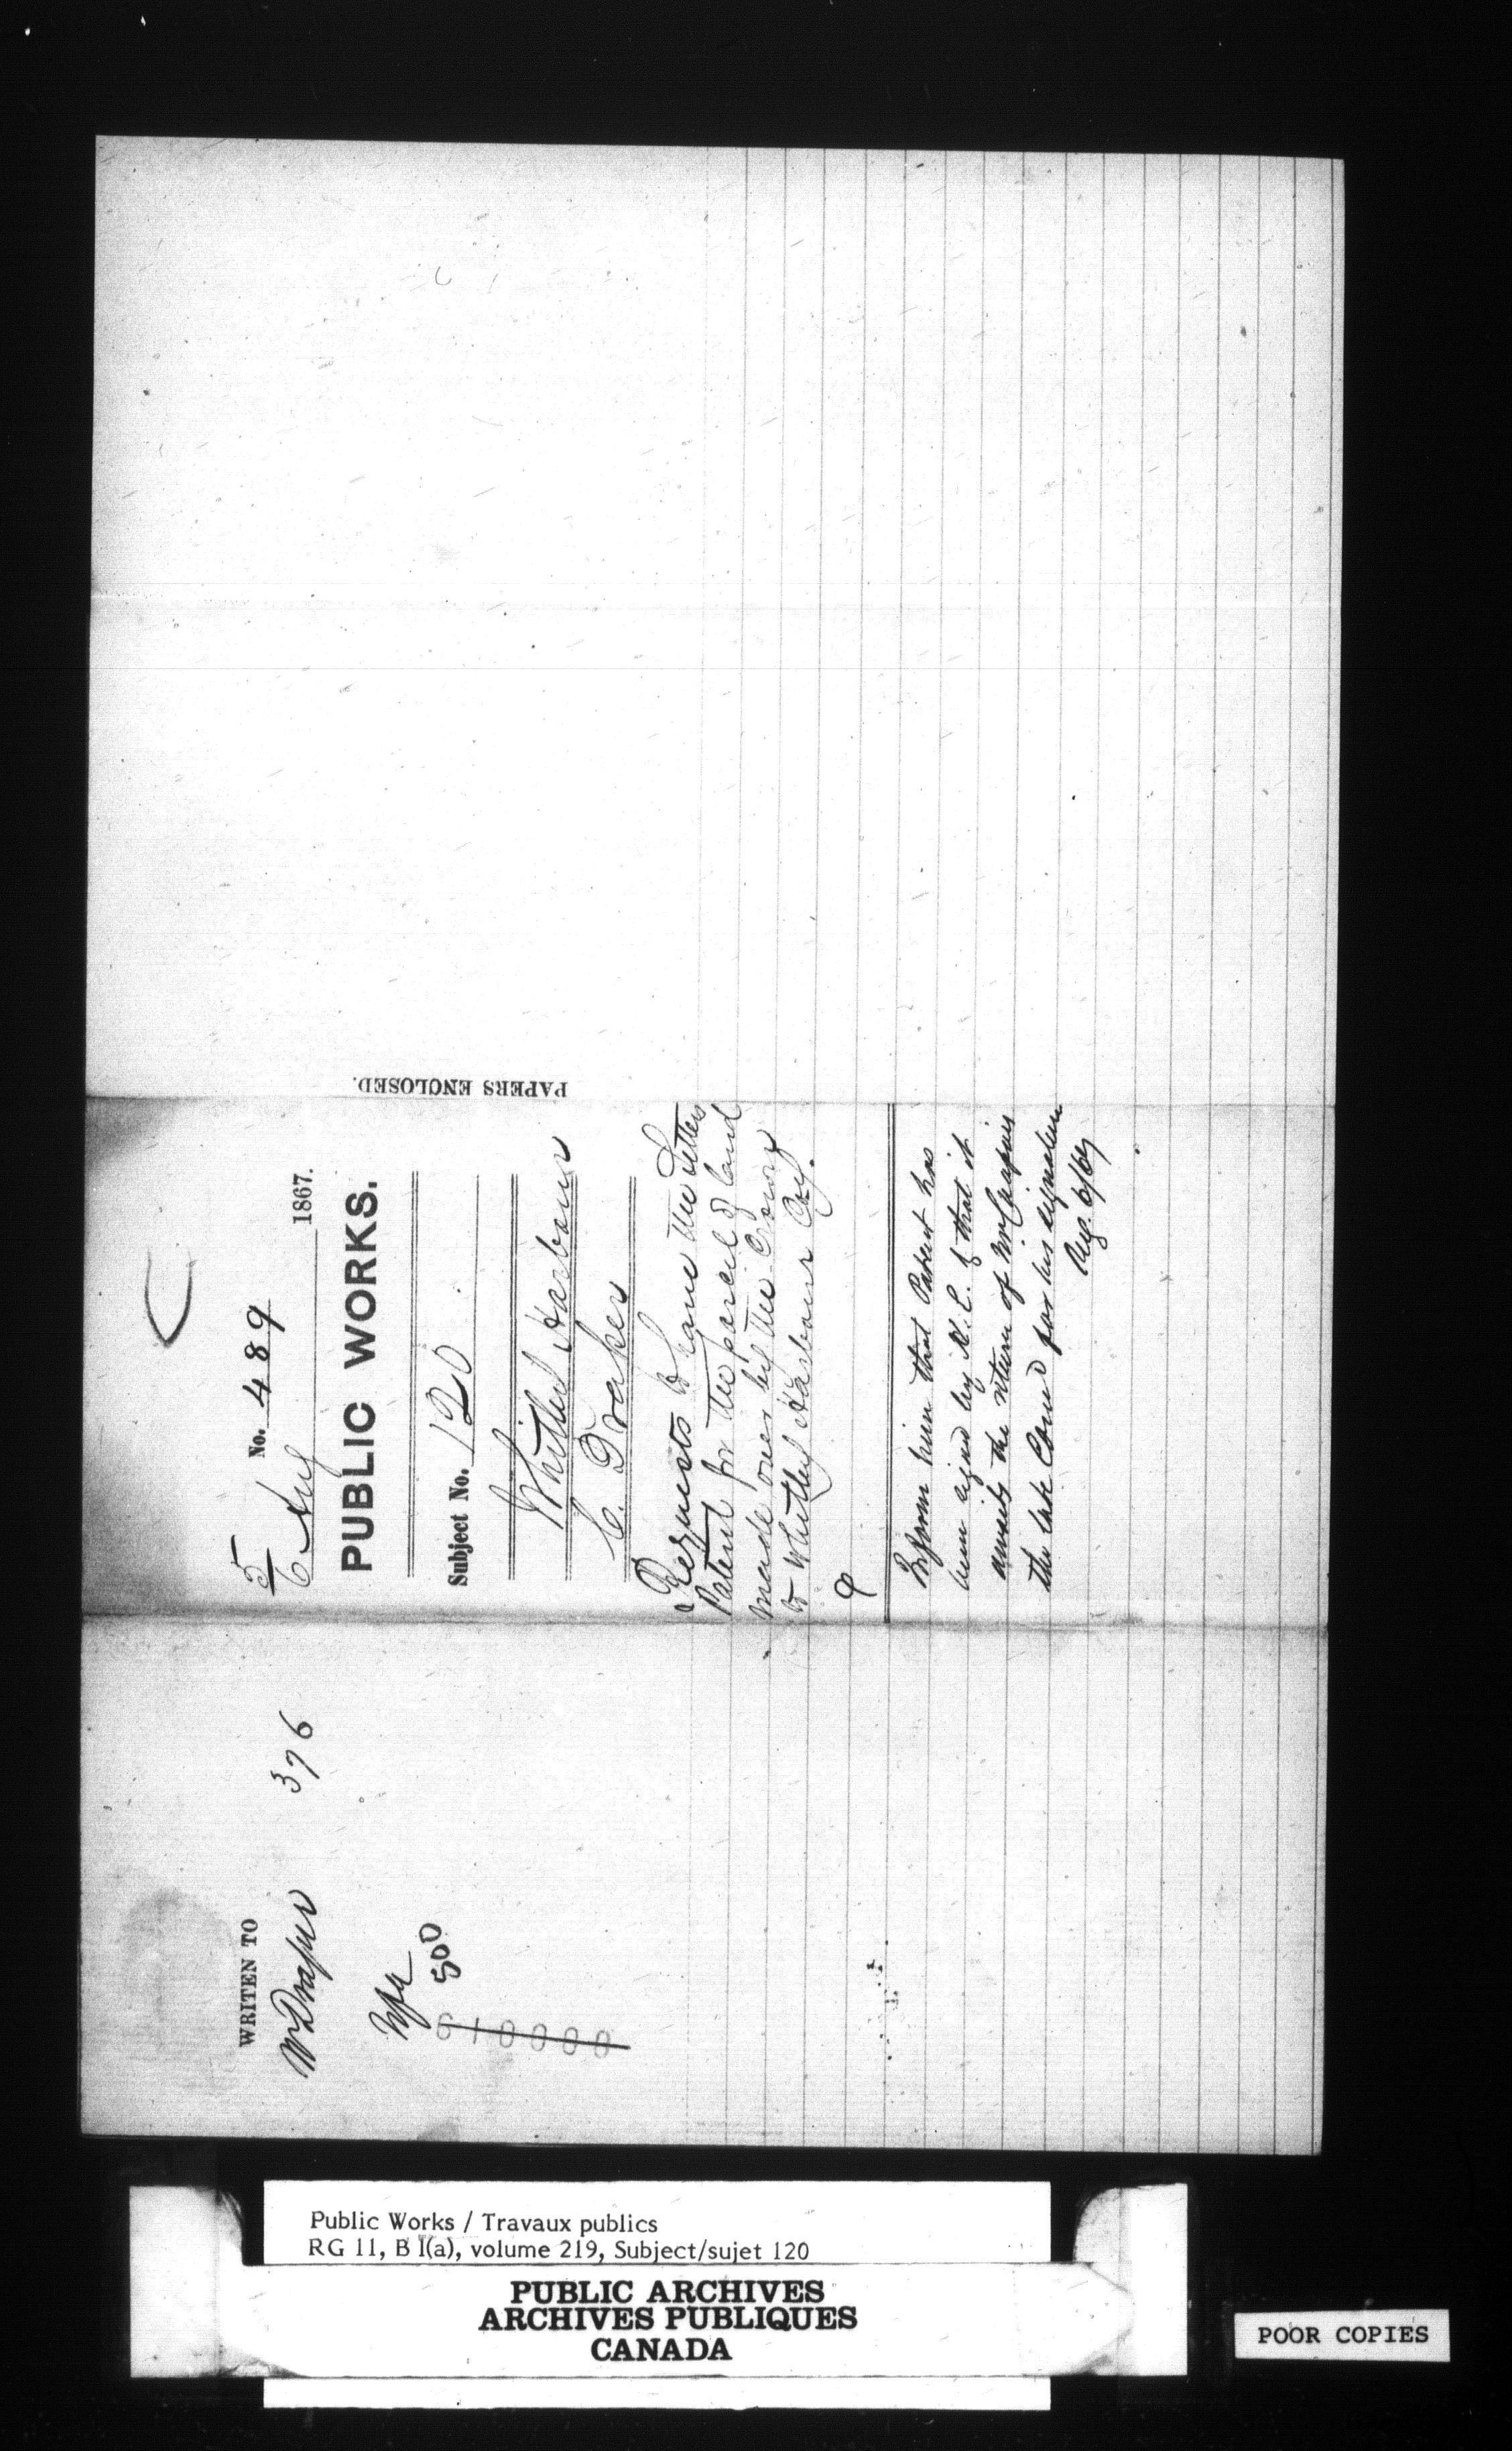 No. 489
5
6 Aug 1867.
PUBLIC WORKS.
Subject No. 120
Whitby Harbour
C. Draper
Requests to have the Letters
Patent for the parcel of land
made over by the Crown
to Whitby Harbour Coy.
Inform him that Patent has
been signed by H. E. & that it
awaits the return of Mr
the late for his signature
Aug. 6/67
PAPERS ENCLOSED.
WRITEN TO
Mr Draper 376
500
Public Works / Travaux publics
RG 11, B I(a), volume 219, Subject/sujet 120
PUBLIC ARCHIVES
ARCHIVES PUBLIQUES
CANADA
POOR COPIES